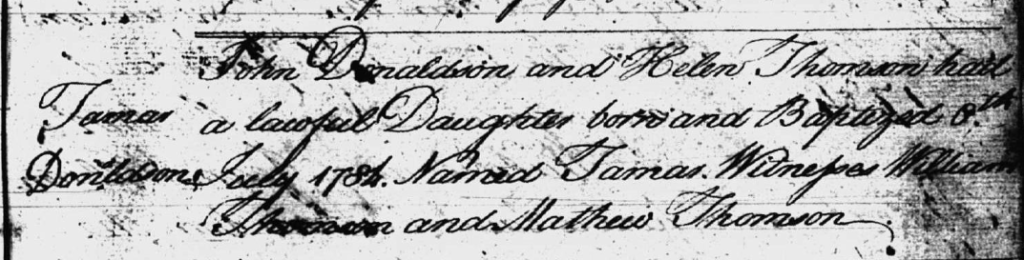 John Donaldson and Helen Thomson had
Tamas a lawful Daughter born and Baptized 8th
Donaldson July 1784. Named Tamas. Witnesses William
Thomson and Mathew Thomson